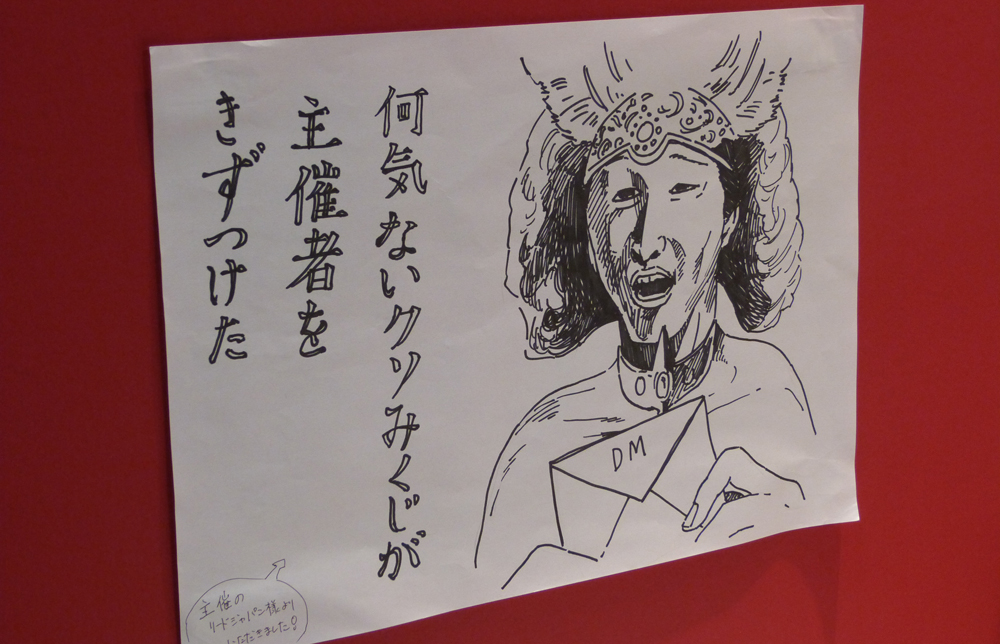 何気ないクリみくじが
主催者を
きずつけた
DM
主催の
リードジャパン様より
いただきました!